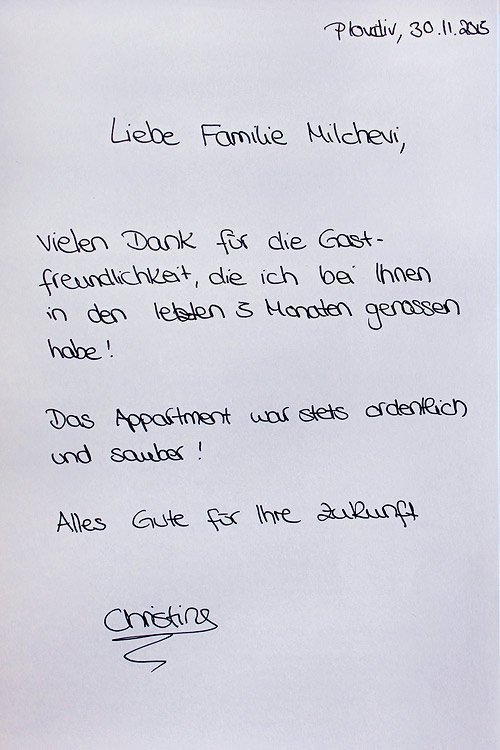 Plovdiv, 30.11.2015
Liebe Familie Milchevi,
Vielen Dank für die Gast-
freundlichkeit, die ich bei Ihnen
in den letzten 3 Monaten genossen
habe!
Das Appartment war stets ordentlich
und sauber!
Alles Gute für Ihre Zukunft
Christine